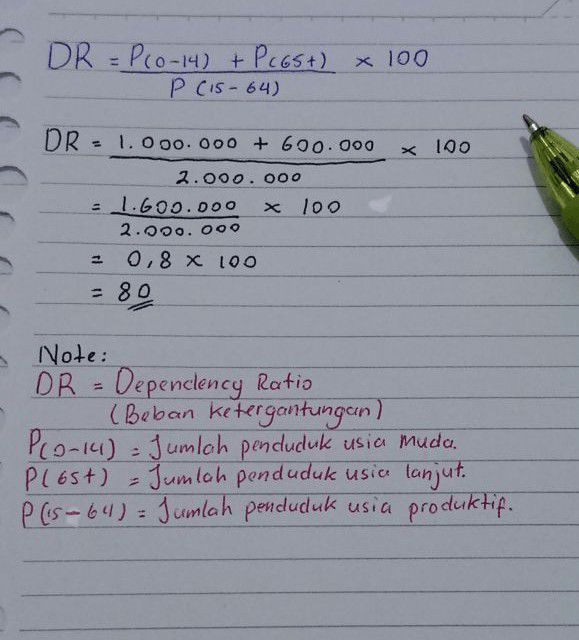 DR = P(0-14) + P(65+) x 100
P (15-64)
DR = 1.000.000 + 600.000 x 100
2.000.000
= 1.600.000 x 100
2.000.000
= 0,8 x 100
= 80
Note:
DR = Dependency Ratio
(Beban ketergantungan)
P(0-14) = Jumlah penduduk usia muda.
P(65+) = Jumlah penduduk usia lanjut.
P(15-64) = Jumlah penduduk usia produktif.